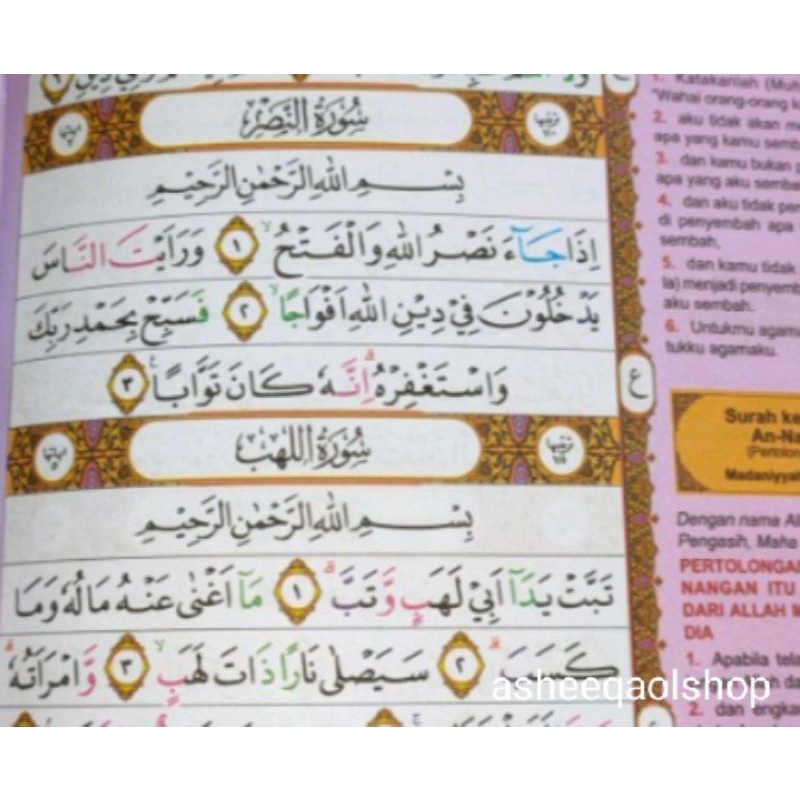 سُورَةُ النَّصْرِ
بِسْمِ اللّٰهِ الرَّحْمٰنِ الرَّحِيْمِ
اِذَا جَآءَ نَصْرُ اللّٰهِ وَالْفَتْحُ ۙ ١ وَرَاَيْتَ النَّاسَ
يَدْخُلُوْنَ فِيْ دِيْنِ اللّٰهِ اَفْوَاجًا ۙ ٢ فَسَبِّحْ بِحَمْدِ رَبِّكَ
وَاسْتَغْفِرْهُ ۗ اِنَّهٗ كَانَ تَوَّابًا ٣
ع
سُورَةُ اللَّهَبِ
بِسْمِ اللّٰهِ الرَّحْمٰنِ الرَّحِيْمِ
تَبَّتْ يَدَآ اَبِيْ لَهَبٍ وَّتَبَّ ۗ ١ مَآ اَغْنٰى عَنْهُ مَالُهٗ وَمَا
كَسَبَ ۗ ٢ سَيَصْلٰى نَارًا ذَاتَ لَهَبٍ ۙ ٣ وَّامْرَاَتُهٗ ۗ
1. Katakanlah
"Wahai orang-orang
2. aku tidak akan
apa yang kamu
3. dan kamu bukan
apa yang aku
4. dan aku tidak
di penyembah apa
sembah,
5. dan kamu tidak
la) menjadi
aku sembah.
6. Untukmu
tukku agamaku.
Surah
Dengan nama
Pengasih, Maha
NANGAN ITU
DARI ALLAH
DIA
1. Apabila
2. dan
asheeqaolshop